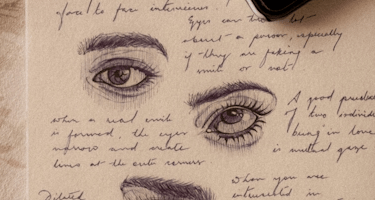 face to face interviews.
Eyes can
about a person, especially
if they are faking a
smile or not!
A good
of two
being in love
is mutual gaze
when a real smile
is formed, the eyes
narrow and create
lines at the outer corners
when you are
interested in
Dilated